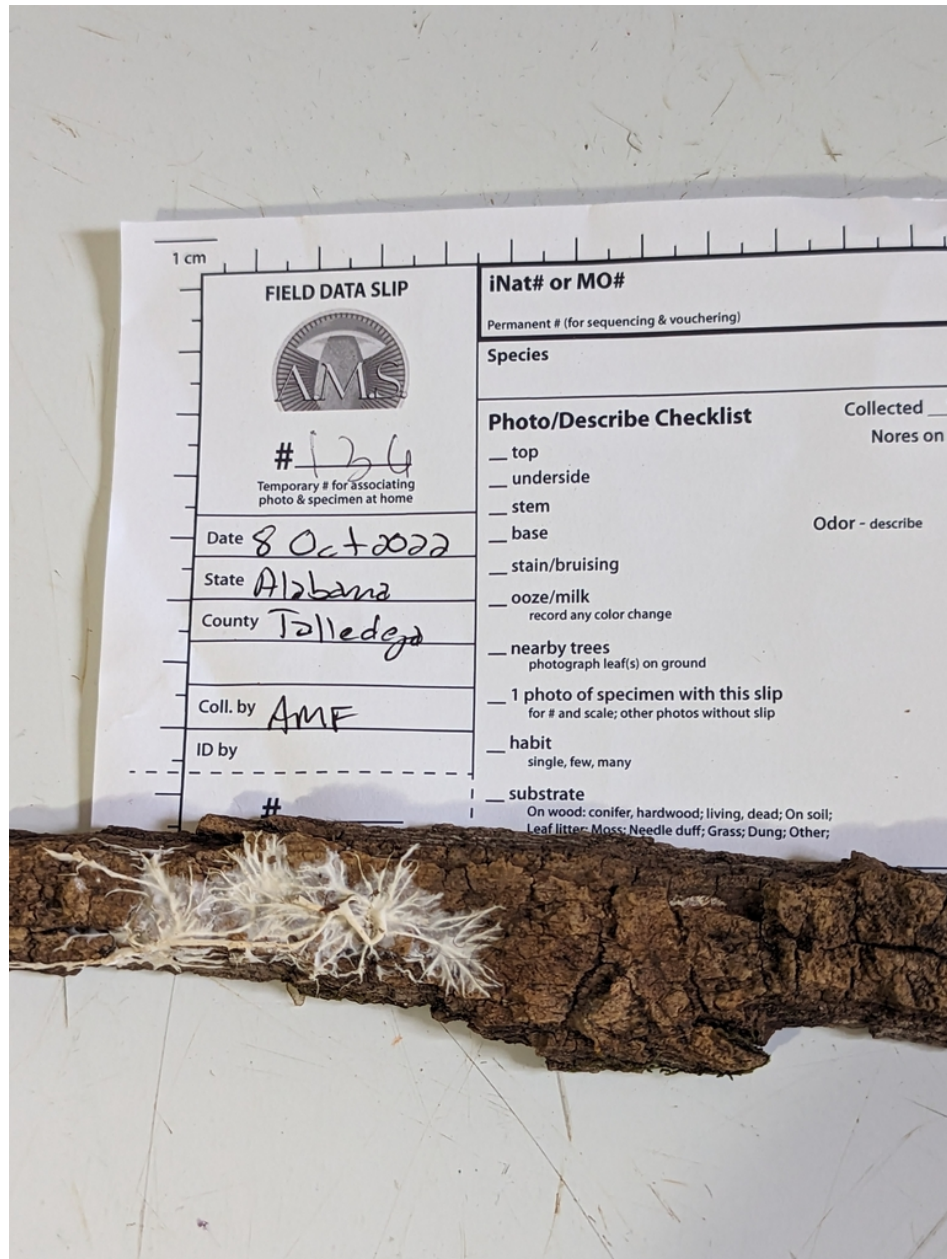 1 cm
FIELD DATA SLIP
A.M.S
#134
Temporary # for associating
photo & specimen at home
Date 8 Oct 2022
State Alabama
County Talledega
Coll. by AMF
ID by
#
iNat# or MO#
Permanent # (for sequencing & vouchering)
Species
Photo/Describe Checklist
Collected
Nores on
__ top
__ underside
__ stem
__ base
Odor - describe
__ stain/bruising
__ ooze/milk
record any color change
__ nearby trees
photograph leaf(s) on ground
__ 1 photo of specimen with this slip
for # and scale; other photos without slip
__ habit
single, few, many
__ substrate
On wood: conifer, hardwood; living, dead; On soil;
Leaf litter; Moss; Needle duff; Grass; Dung; Other;